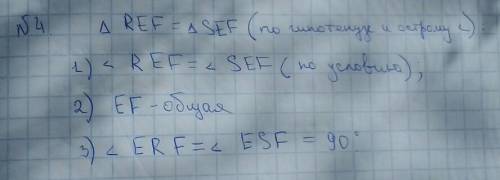 №4 Δ REF = Δ SEF (по гипотенузе и острому ∠)
1) ∠ REF = ∠ SEF (по условию),
2) EF - общая
3) ∠ ERF = ∠ ESF = 90°